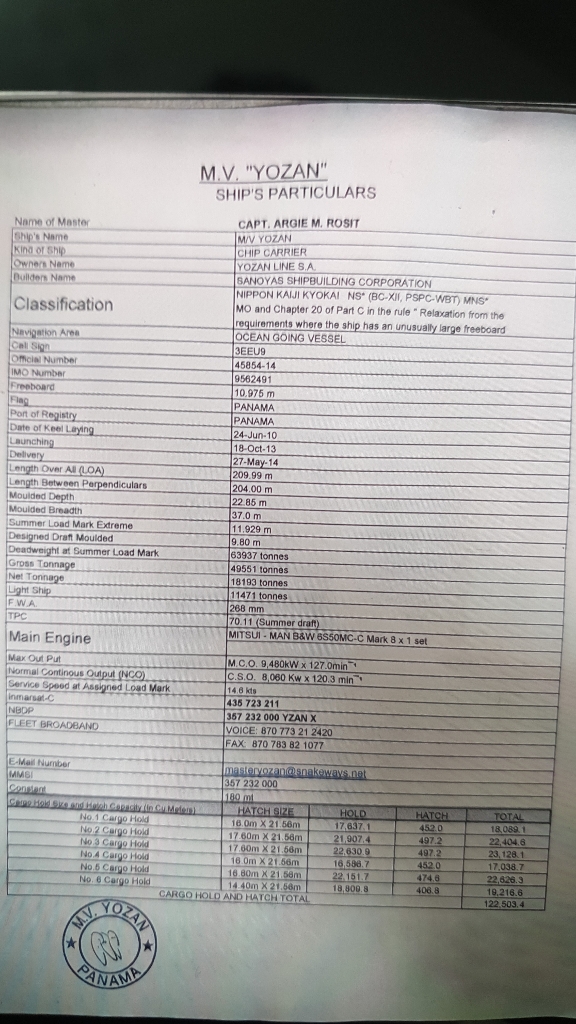 M.V. "YOZAN"
SHIP'S PARTICULARS
Name of Master CAPT. ARGIE M. ROSIT
Ship's Name M/V YOZAN
Kind of Ship CHIP CARRIER
Owners Name YOZAN LINE S.A.
Builders Name SANOYAS SHIPBUILDING CORPORATION
Classification NIPPON KAIJI KYOKAI NS* (BC-XII, PSPC-WBT) MNS*
MO and Chapter 20 of Part C in the rule " Relaxation from the
requirements where the ship has an unusually large freeboard
Navigation Area OCEAN GOING VESSEL
Call Sign 3EEU9
Official Number 45854-14
IMO Number 9562491
Freeboard 10.975 m
Flag PANAMA
Port of Registry PANAMA
Date of Keel Laying 24-Jun-10
Launching 18-Oct-13
Delivery 27-May-14
Length Over All (LOA) 209.99 m
Length Between Perpendiculars 204.00 m
Moulded Depth 22.85 m
Moulded Breadth 37.0 m
Summer Load Mark Extreme 11.929 m
Designed Draft Moulded 9.80 m
Deadweight at Summer Load Mark 63937 tonnes
Gross Tonnage 49551 tonnes
Net Tonnage 18193 tonnes
Light Ship 11471 tonnes
F.W.A. 268 mm
TPC 70.11 (Summer draft)
Main Engine MITSUI - MAN B&W 6S50MC-C Mark 8 x 1 set
Max Out Put M.C.O. 9,480kW x 127.0min⁻¹
Normal Continous Output (NCO) C.S.O. 8,060 Kw x 120.3 min⁻¹
Service Speed at Assigned Load Mark 14.6 kts
Inmarsat-C 435 723 211
NBDP 357 232 000 YZAN X
FLEET BROADBAND VOICE: 870 773 21 2420
FAX: 870 783 82 1077
E-Mail Number masteryozan@snakeways.net
MMSI 357 232 000
Constant 180 mt
Cargo Hold Size and Hatch Capacity (In Cu Meters) HATCH SIZE HOLD HATCH TOTAL
No.1 Cargo Hold 16.0m X 21.56m 17,637.1 452.0 18,089.1
No.2 Cargo Hold 17.60m X 21.56m 21,907.4 497.2 22,404.6
No.3 Cargo Hold 17.60m X 21.56m 22,630.9 497.2 23,128.1
No.4 Cargo Hold 16.0m X 21.56m 16,586.7 452.0 17,038.7
No.5 Cargo Hold 16.80m X 21.56m 22,151.7 474.6 22,626.3
No.6 Cargo Hold 14.40m X 21.56m 18,809.8 406.8 19,216.6
CARGO HOLD AND HATCH TOTAL 122,503.4
M.V. YOZAN
PANAMA